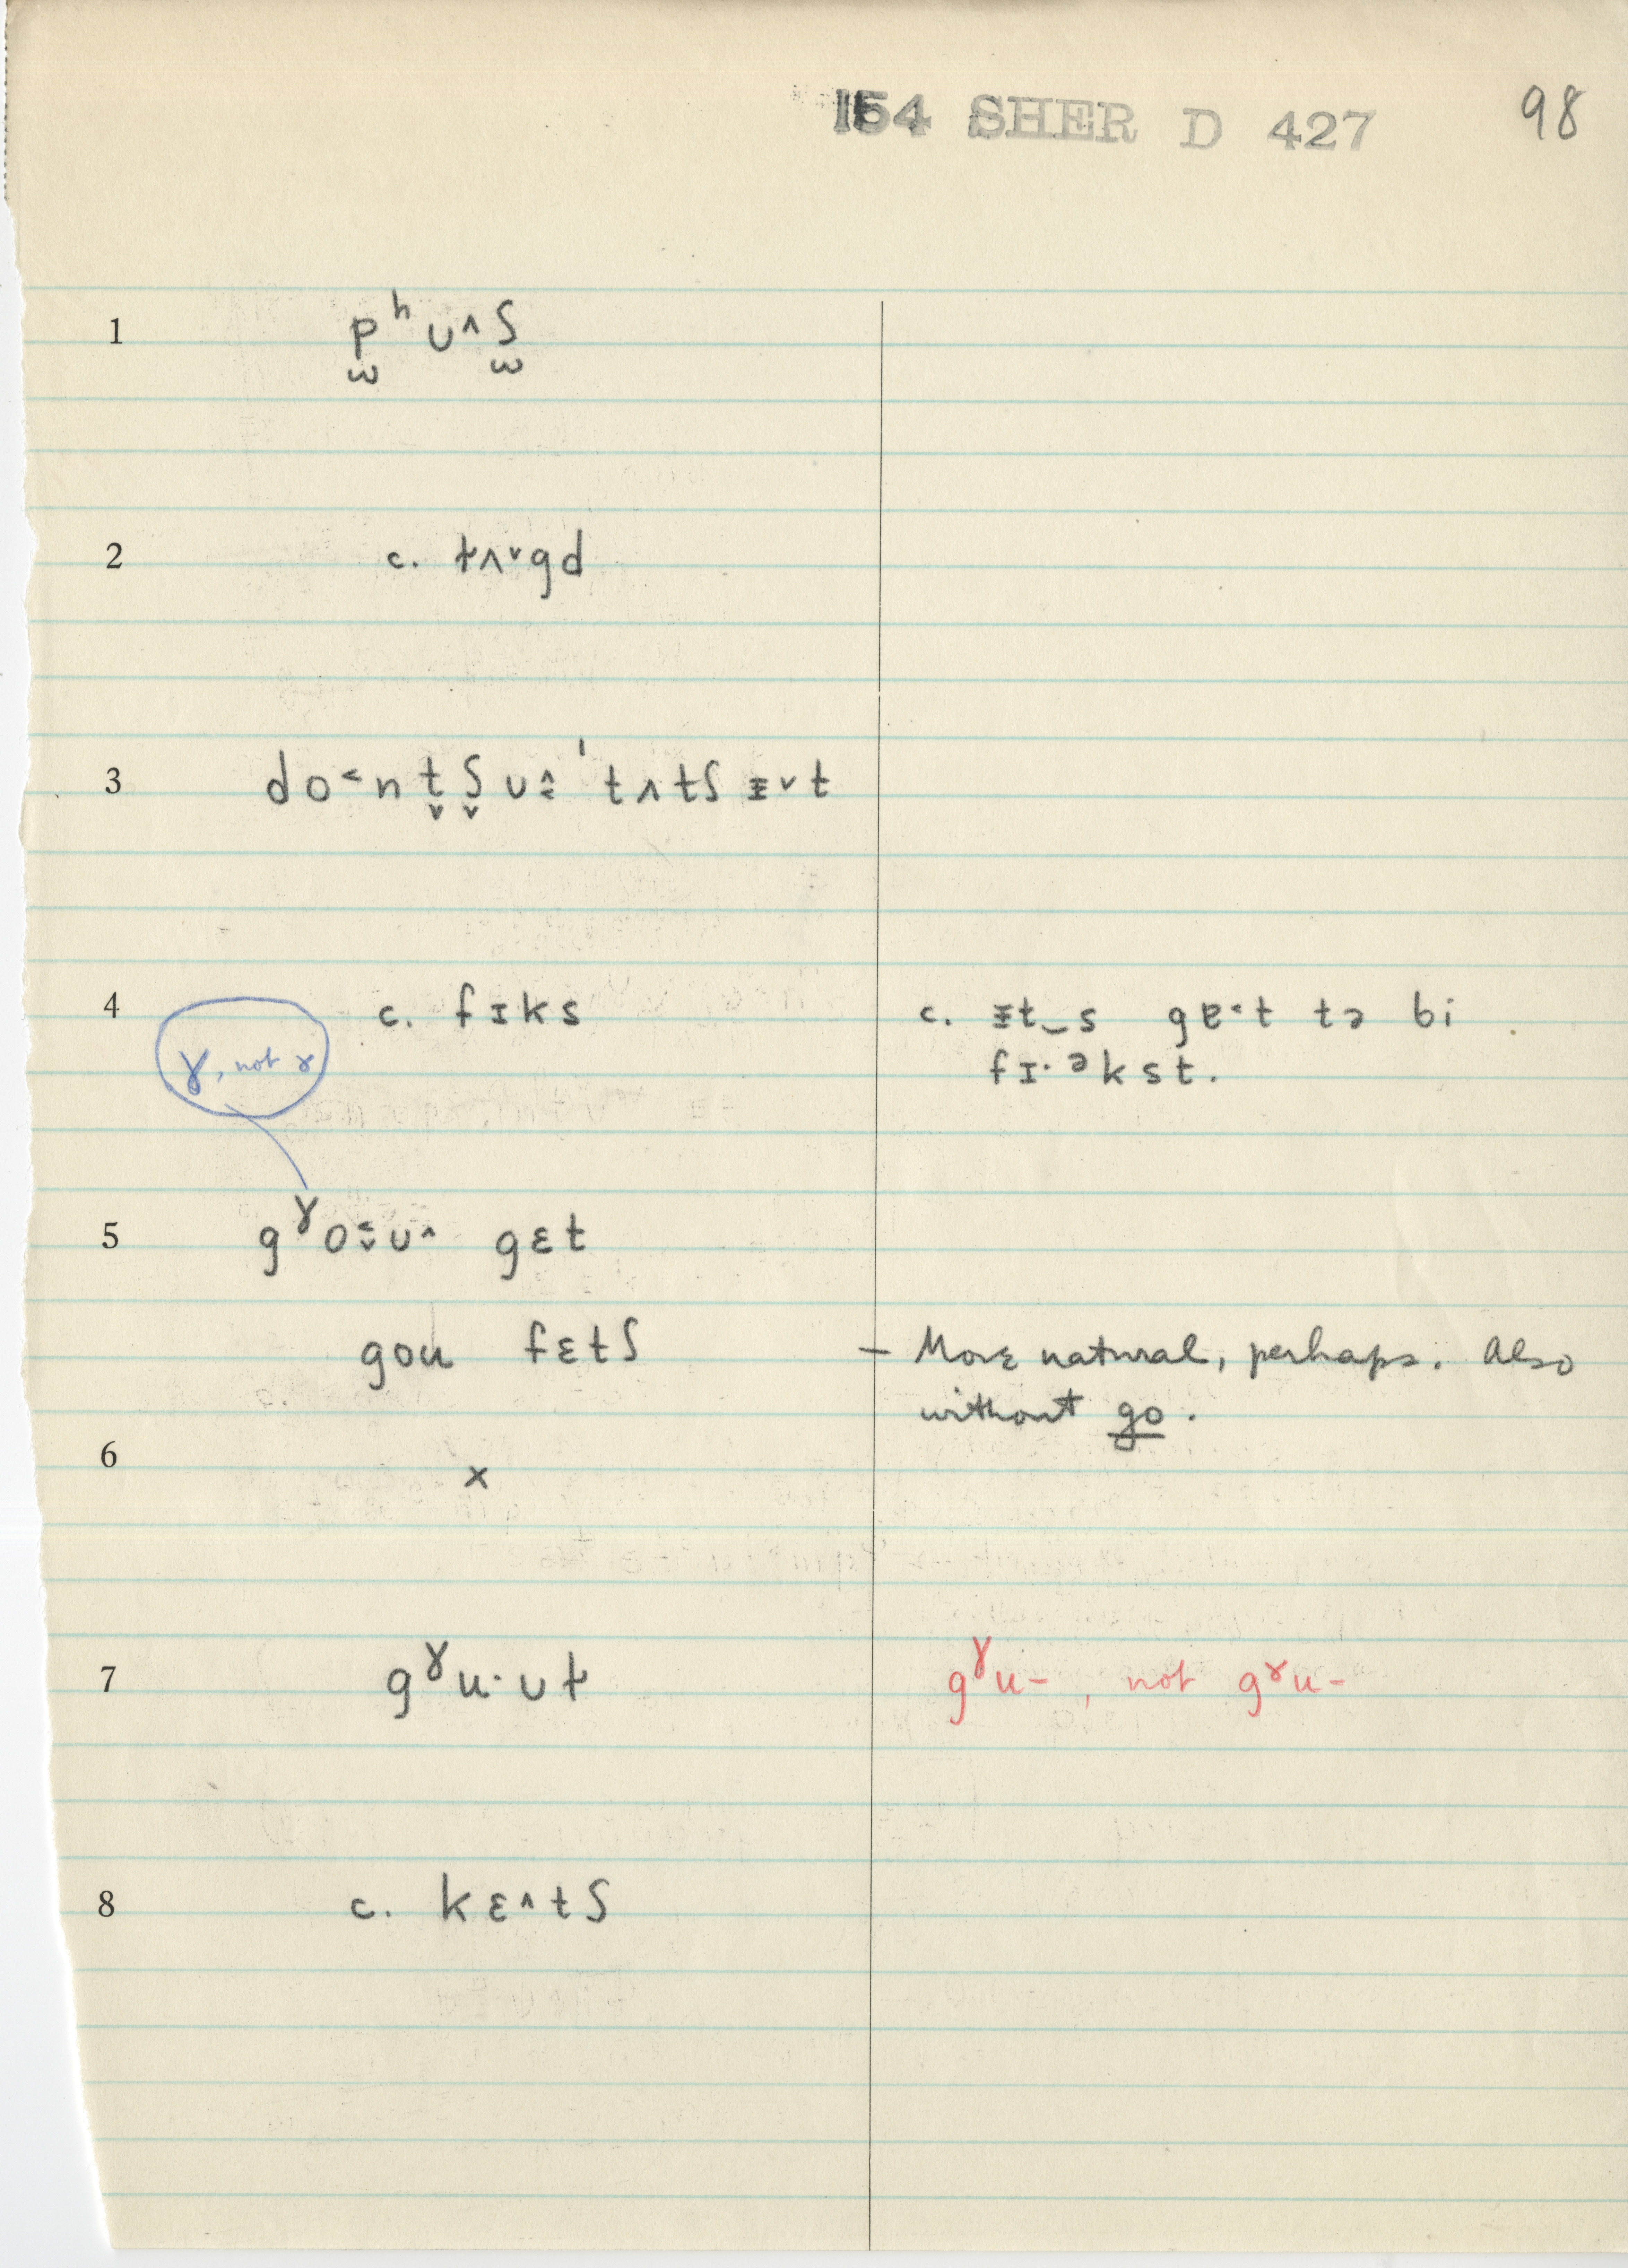 154 SHER D 427 98
1 p̫ʰ ʊ^ ʃ̫
2 c. tʌ˅gd
3 do˂n t̬ʃ̬ ʊ^˂ ˈtʌtʃ ɪ˅t
4 c. fɪks c. ɪt‿s gɐ˂t tə bi
fɪ·ᵊkst.
ɣ, not ɤ
5 gˠo˂˅ʊ^ gɛt
goʊ fɛtʃ — More natural, perhaps. Also
without go.
6 x
7 gˠu·ʊɫ gˠu– , not gɤu–
8 c. kɛ^tʃ